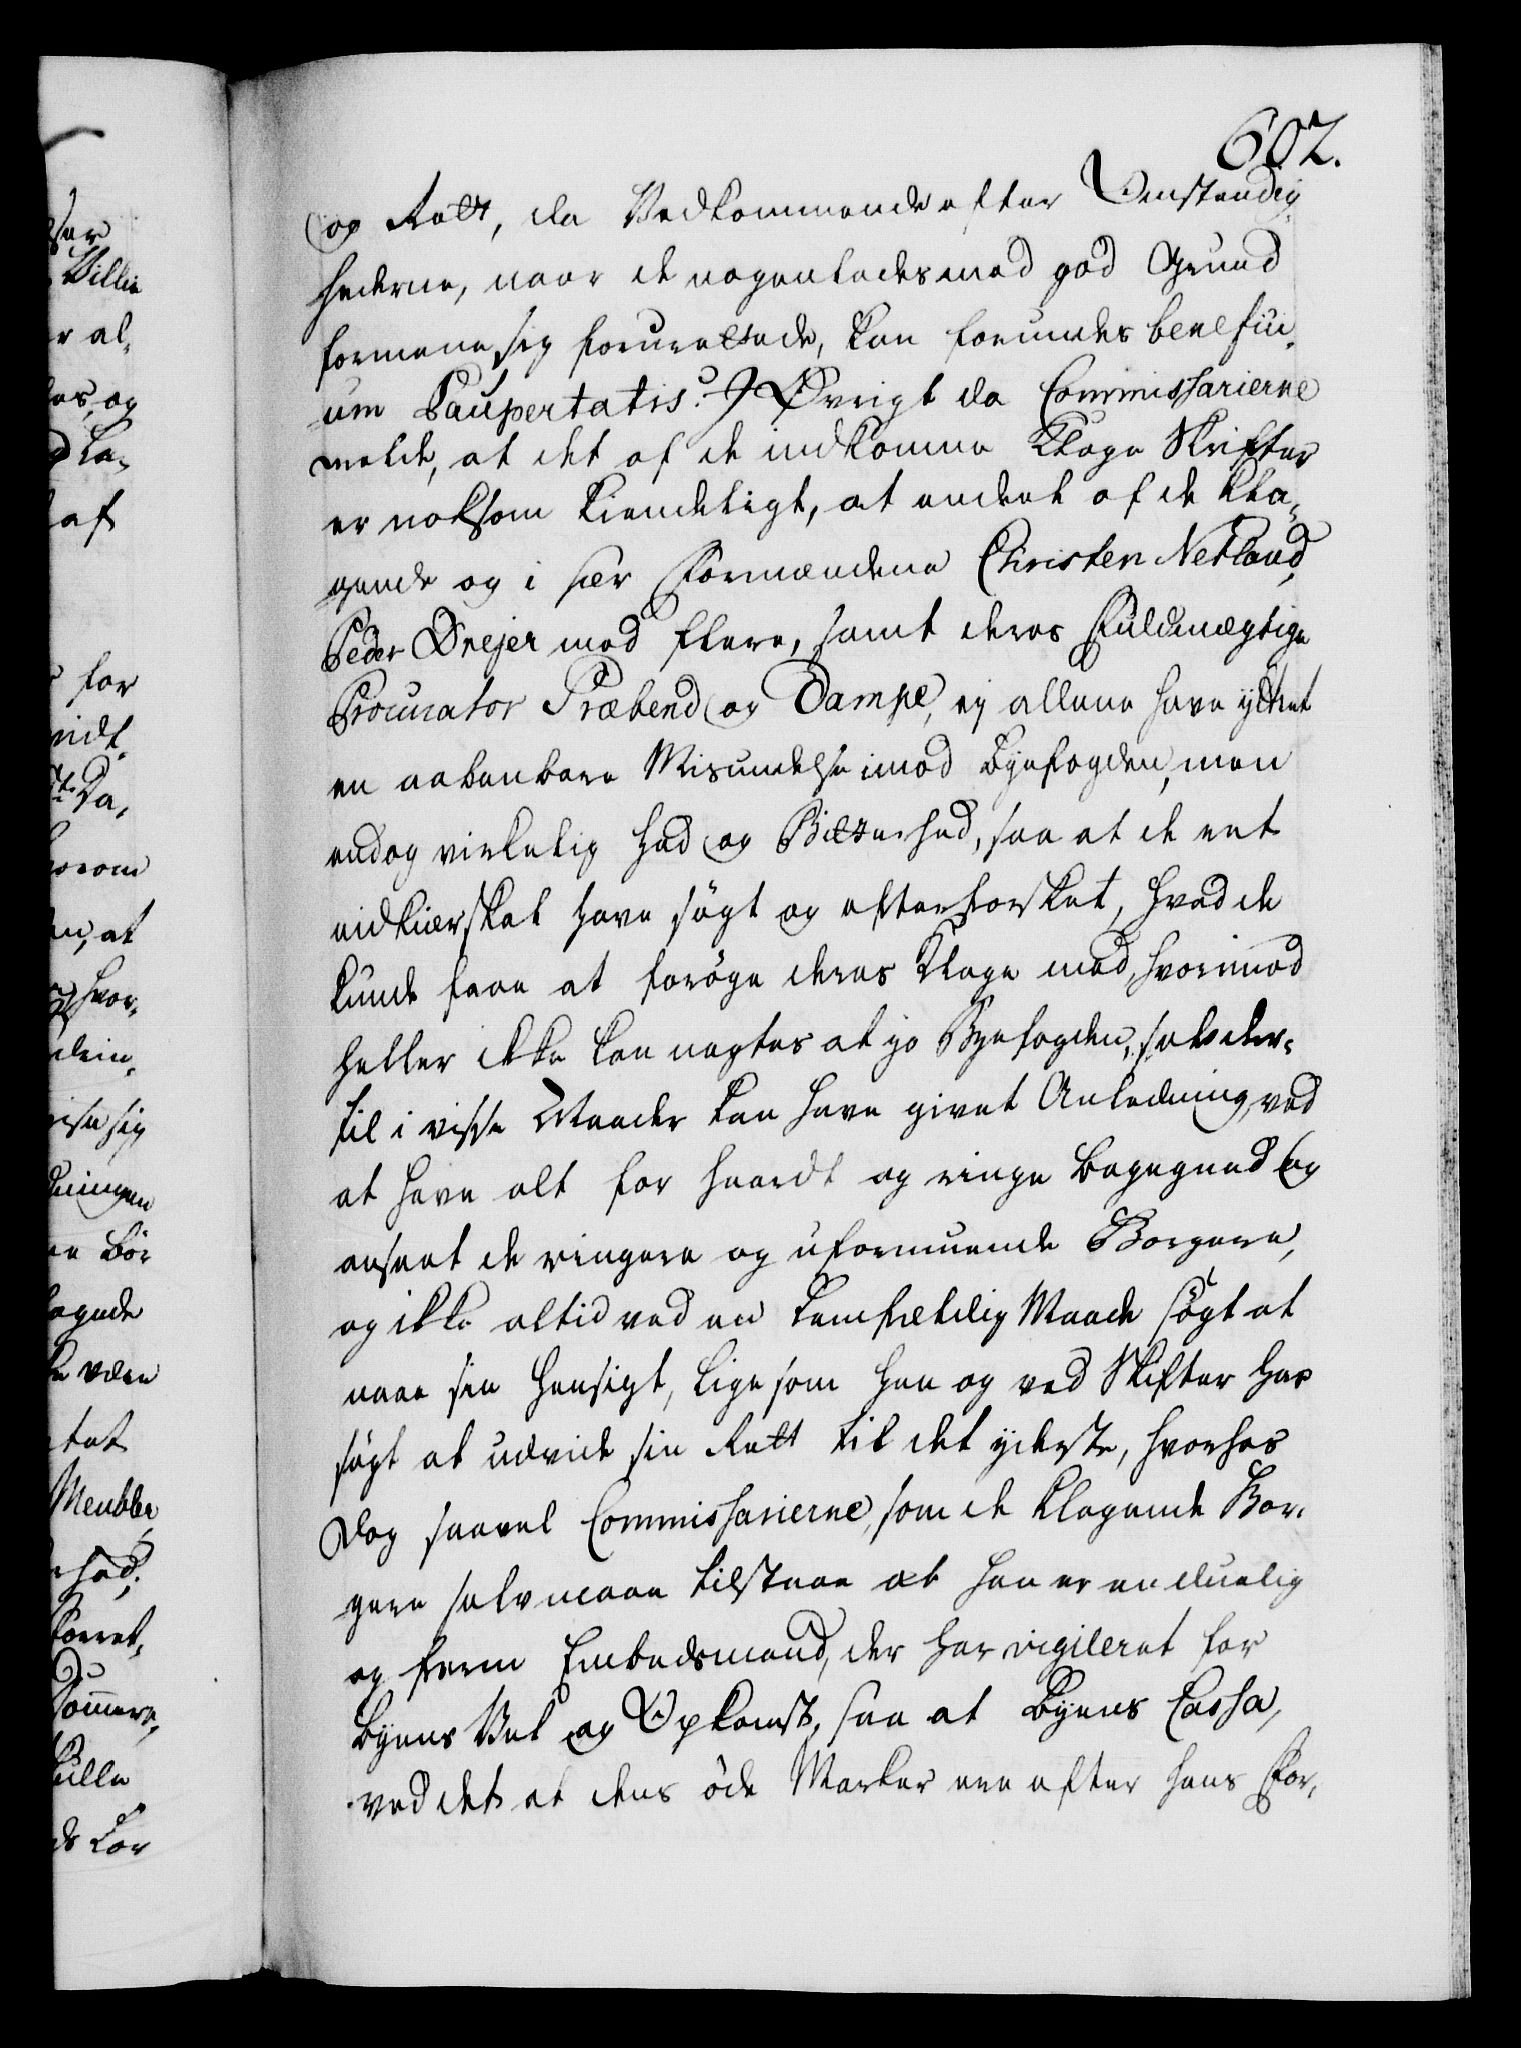 602.
og Rett, da Vedkommende efter Omstændig
hederne, naar de nogenledes med god Grund
formene sig forurettede, kan forundes benefici,
um Paupertatis. I Øvrigt da Commissarierne
melde, at det af de indkomne Klage Skrifter
er noksom kiendeligt, at endeel af de kla,
gende og i sær Formændene Christen Netland,
Peder Drejer med flere, samt deres Fuldmægtige
Procurator Præbend og Dampe, ej allene have yttret
en aabenbare Misundelse imod Byefogden, men
endog virkelig Had og Bitterhed, saa at de ret
nidkiærskal have søgt og efterforsket, hvad de
kunde faae at forøge deres Klage med, hvorimod
heller ikke kan negtes at jo Byefogden, selv der,
til i visse Maader kan have givet Anledning, ved
at have alt for haardt og ringe begegned og
anseet de ringere og uformuende Borgere,
og ikke altid ved en lemfældig Maade søgt at
naae sin Hensigt, lige som han og ved Skifter har
søgt at udvide sin Rett til det yderste, hvorhos
dog saavel Commissarierne, som de klagende Bor,
gere selv maae tilstaae at han er en duelig
og ferm Embedsmand, der har vigileret for
Byens Vel og Opkomst, saa at Byens Cassa,
ved det at dens øde Marker ere efter hans For,